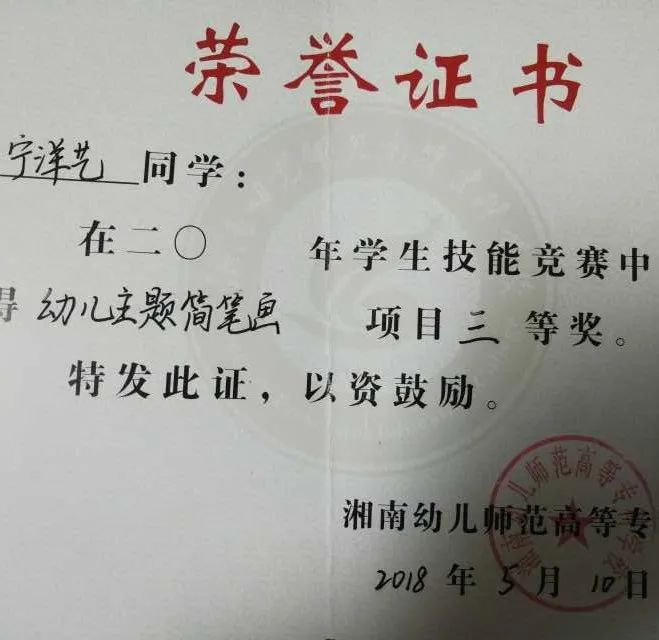 荣誉证书
宁洋艺 同学:
在二〇 年学生技能竞赛中
得 幼儿主题简笔画 项目 三 等奖。
特发此证,以资鼓励。
湘南幼儿师范高等专
2018 年 5 月 10 日
湘南幼儿师范高等专科学校